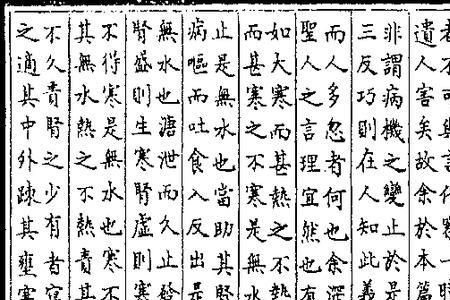 遺人害矣故余於本篇
非謂病機之變止於是
三反巧則在人知此義
而人多忽者何也余深
聖人之言理宜然也有
如大寒而甚熱之不熱
而甚寒之不寒是無水
止是無水也當助其腎
病嘔而吐食入反出是
無水也溏泄而久止發
腎盛則生寒腎虛則寒
不得寒是無水也寒不
其無水熱之不熱責其
不久責腎之少有者
之適其中外疎其壅塞